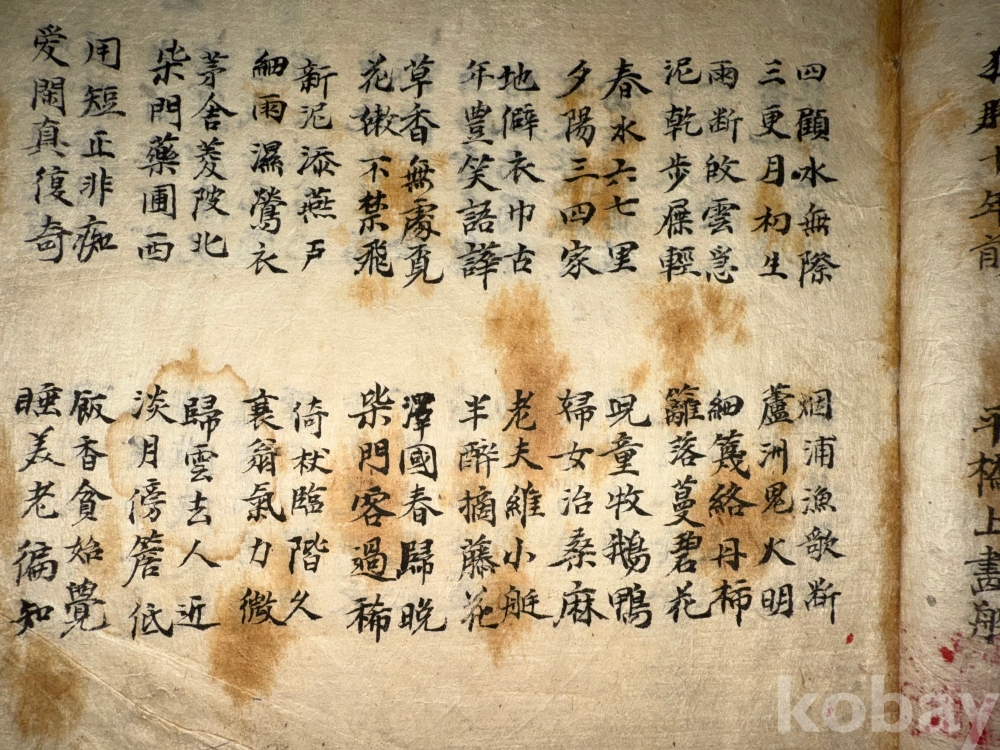 十年前
平橋上畫船
四顧水無際
三更月初生
烟浦漁歌斷
蘆洲鬼火明
雨斷皎雲急
泥乾步屧輕
細篾絡丹柿
籬落蔓碧花
春水六七里
夕陽三四家
兒童牧鵝鴨
婦女治桑麻
地僻衣巾古
年豊笑語譁
老夫維小艇
半醉摘藤花
草香無處覓
花嫩不禁飛
澤國春歸晚
柴門客過稀
新泥添燕戶
細雨濕鶯衣
倚杖臨階久
衰翁氣力微
茅舍菱陂北
柴門藥圃西
歸雲去人近
淡月傍簷低
用短正非痴
愛閑真復奇
飯香貪始覺
睡美老偏知
kobay